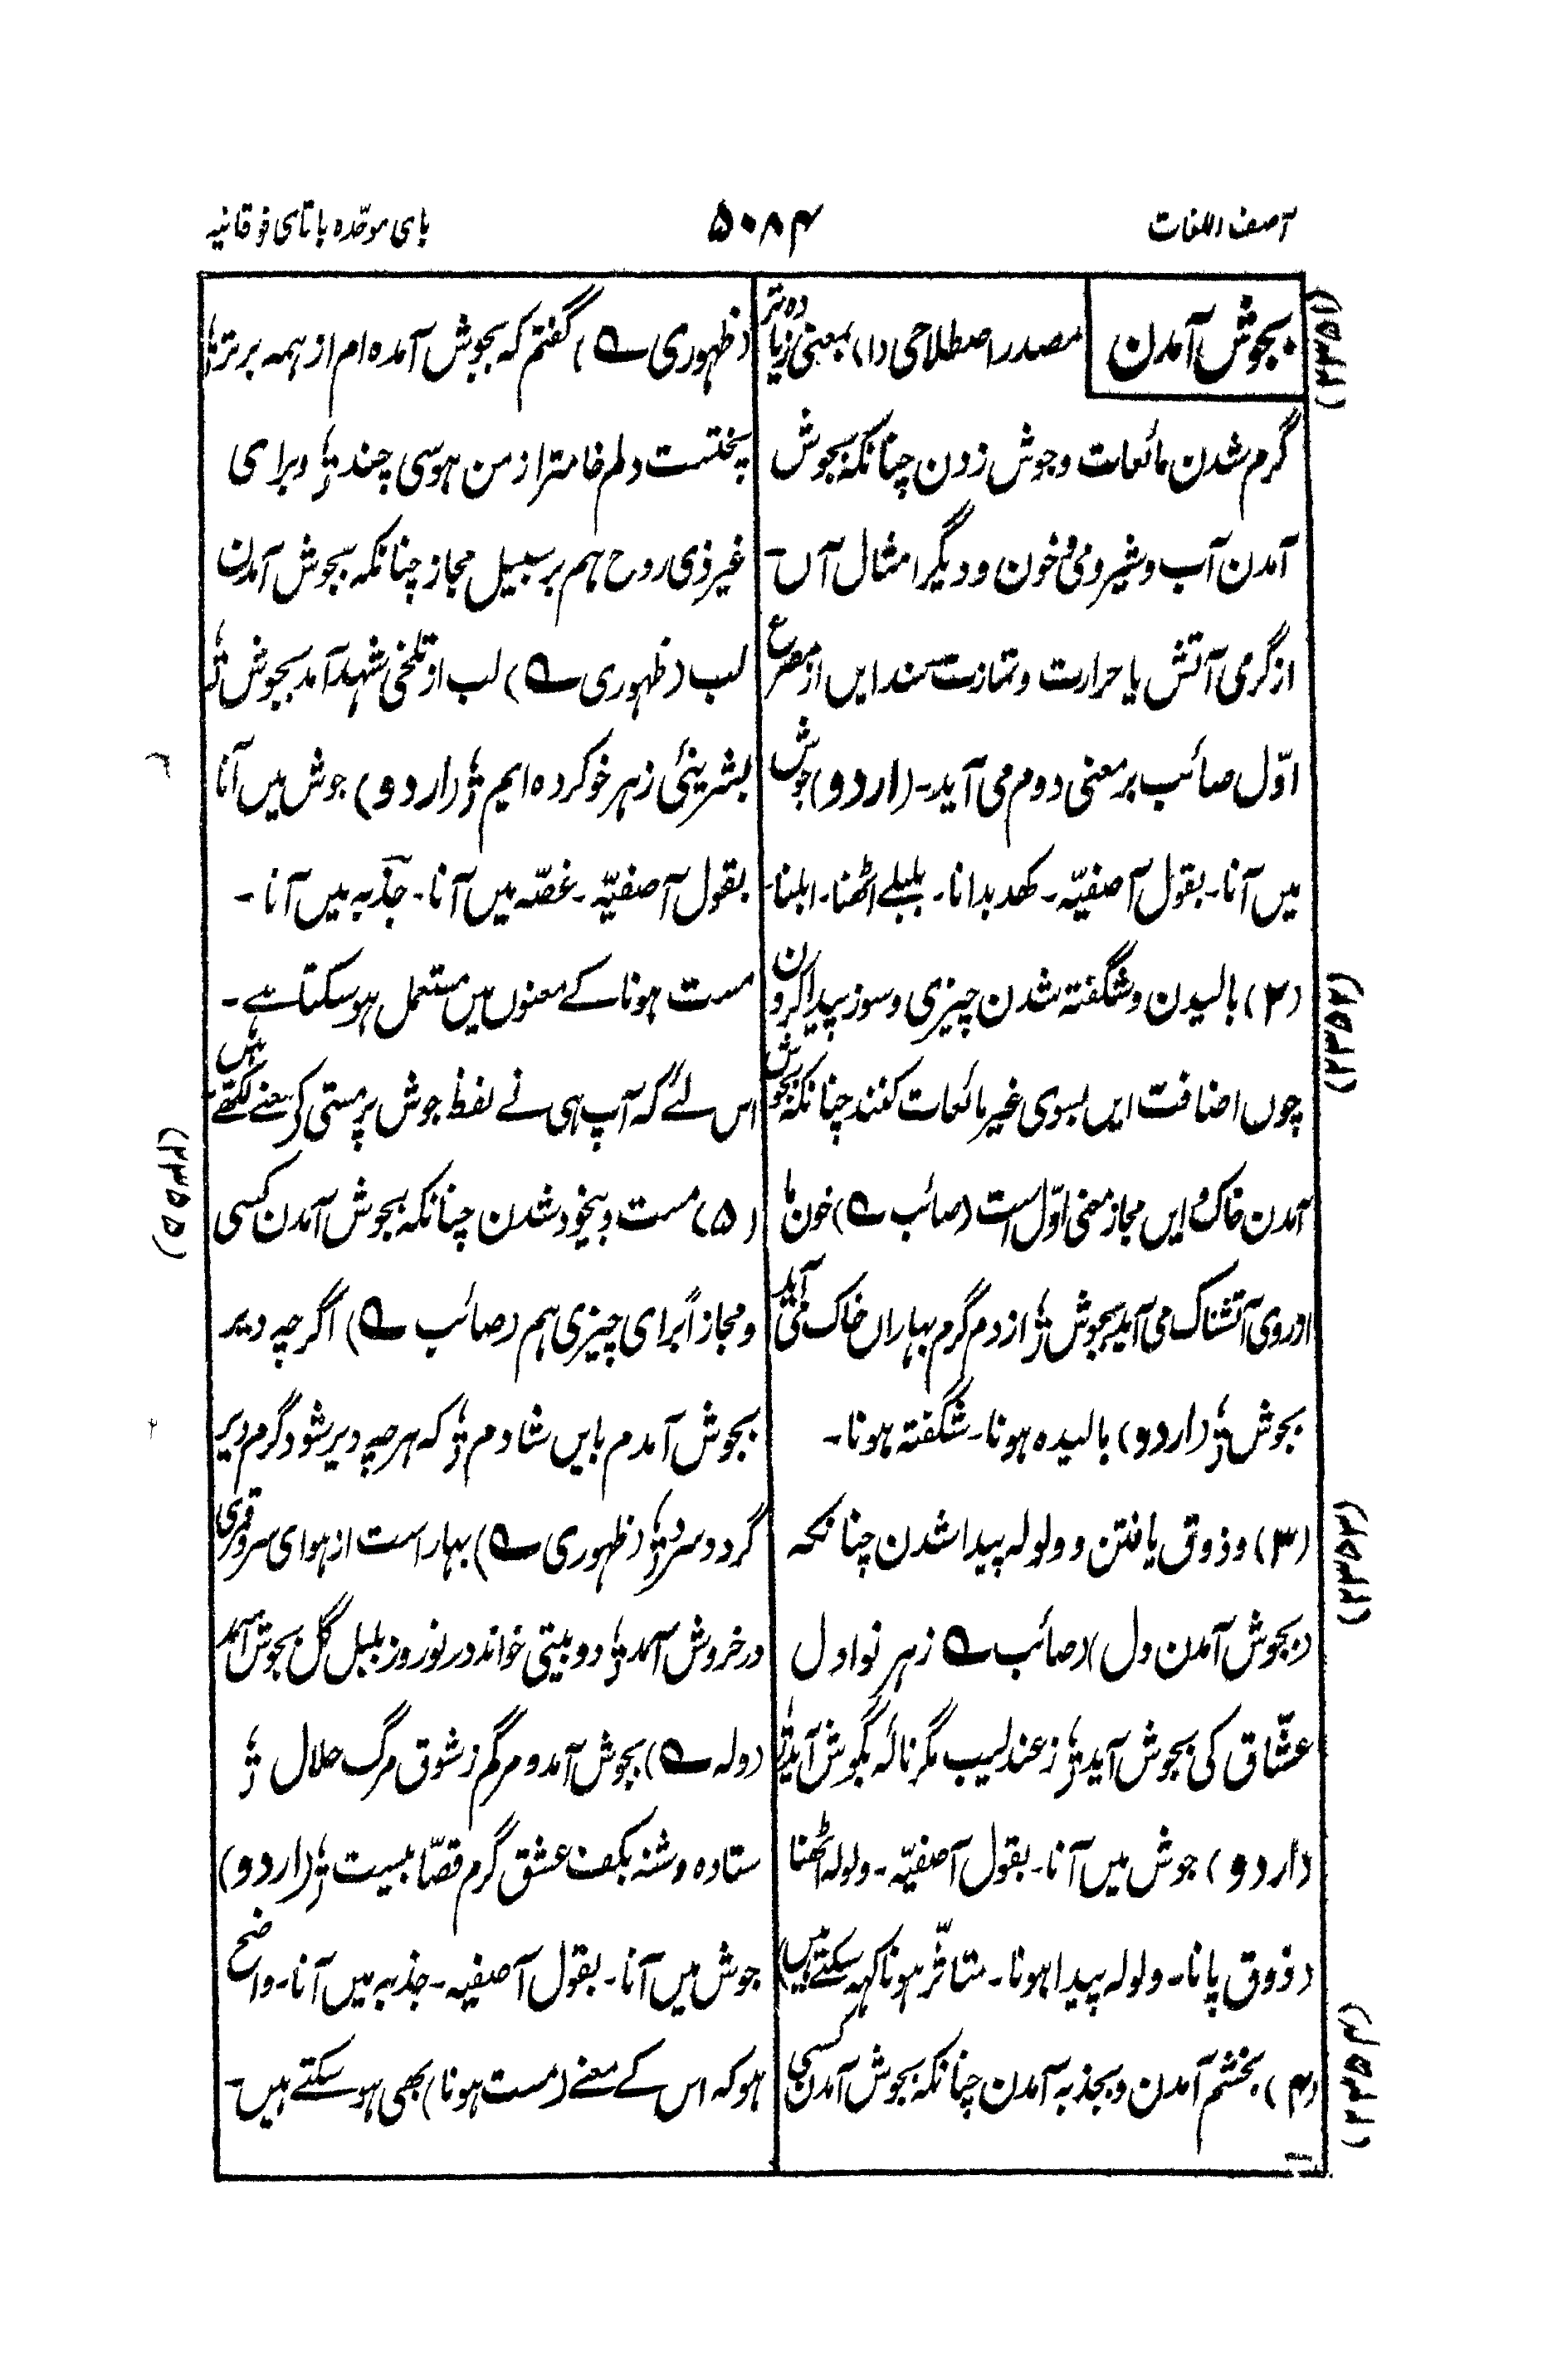 آصف اللغات
۵۰۸۴
بای موحّدہ با تای فوقانیہ
بجوش آمدن
مصدر اصطلاحی (۱) بمعنی زیادہ تر
گرم شدن مائعات و جوش زدن چنانکہ بجوش
آمدن آب و شیر و می و خون و دیگر امثال آں ۔
از گرمی آتش یا حرارت و تمازت سند ایں از مصرع
اوّل صائب بر معنی دوم می آید ۔ (اردو) جوش
میں آنا ۔ بقول آصفیّہ ۔ کھدبدانا ۔ بلبلے اٹھنا ۔ ابلنا ۔
(۲) بالیدن و شگفتہ شدن چیزی و سوز پیدا کردن
چوں اضافت ایں بسوی غیر مائعات کنند چنانکہ بجوش
آمدن خاک و ایں مجاز معنی اوّل است (صائب ؎) خون ما
از روی آتشناک می آید بجوش ؛ از دم گرم بہاراں خاک می آید
بجوش ؛ (اردو) بالیدہ ہونا ۔ شگفتہ ہونا ۔
(۳) و ذوق یافتن و ولولہ پیدا شدن چنانکہ
(بجوش آمدن دل) (صائب ؎ ز ہر نوا دل
عشّاق کی بجوش آید ؛ ز عندلیب مگر نالہ بگوش آید ؛
(اردو) جوش میں آنا ۔ بقول آصفیّہ ۔ ولولہ اٹھنا
(ذوق پانا ۔ ولولہ پیدا ہونا ۔ متاثّر ہونا کہہ سکتے ہیں)
(۴) بخشم آمدن و بجذبہ آمدن چنانکہ بجوش آمدن کسی
(ظہوری ؎) گفتم کہ بجوش آمدہ ام از ہمہ برتر ؛
پختست دلم خامتر از من ہوسی چند ؛ و برای
غیر ذی روح ہم بر سبیل مجاز چنانکہ بجوش آمدن
لب (ظہوری ؎) لب از تلخی شہد آمد بجوش ؛
بشرینئی زہر خو کردہ ایم ؛ (اردو) جوش میں آنا
بقول آصفیّہ ۔ غصّہ میں آنا ۔ جذبہ میں آنا ۔
مست ہونا کے معنوں میں مستعمل ہو سکتا ہے ۔
اس لئے کہ آپ ہی نے لفظ جوش پر مستی کے معنے لکھے ہیں
(۵) مست و بیخود شدن چنانکہ بجوش آمدن کسی
و مجازاً برای چیزی ہم (صائب ؎) اگرچہ دیر
بجوش آمدم بایں شادم ؛ کہ ہرچہ دیر شود گرم دیر
گردد سرد ؛ (ظہوری ؎) بہار است از ہوای سرو قمری
در خروش آمد ؛ دو بیتی خواند در نوروز بلبل گل بجوش آمد
(ولہ ؎) بجوش آمد و مرگم ز شوق مرگ حلال ؛
ستادہ دشنہ بکف عشق گرم قصّابیست ؛ (اردو)
جوش میں آنا ۔ بقول آصفیہ ۔ جذبہ میں آنا ۔ واضح
ہو کہ اس کے معنے (مست ہونا) بھی ہو سکتے ہیں ۔
(۲۳۵۱)
(۲۳۵۲)
(۲۳۵۳)
(۲۳۵۴)
(۲۳۵۵)